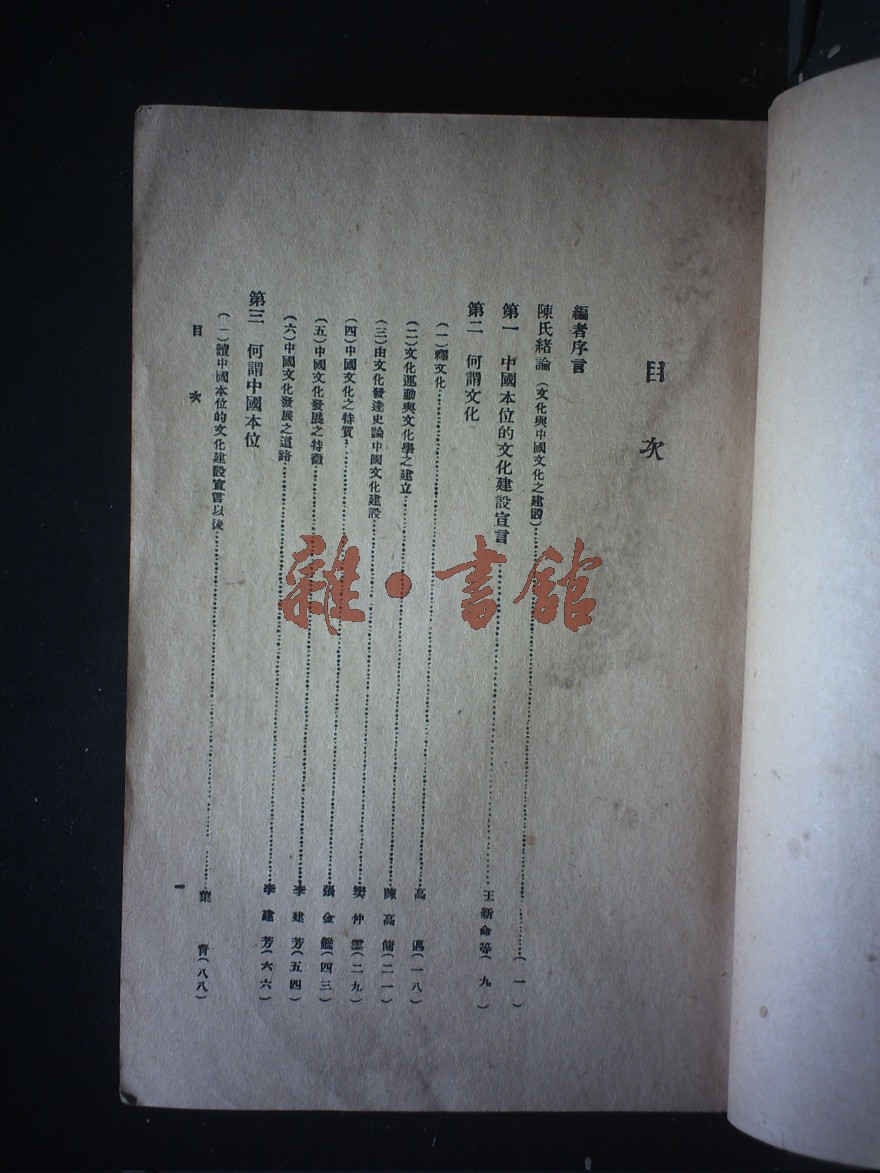 目次
編者序言
陳氏緒論（文化與中國文化之建設）……（一）
第一　中國本位的文化建設宣言……王新命等（九）
第二　何謂文化
（一）釋文化……高邁（一八）
（二）文化運動與文化學之建立……陳高傭（二一）
（三）由文化發達史論中國文化建設……樊仲雲（二九）
（四）中國文化之特質……張金鑑（四三）
（五）中國文化發展之特徵……李建芳（五四）
（六）中國文化發展之道路……李建芳（六六）
第三　何謂中國本位
（一）讀中國本位的文化建設宣言以後……葉青（八八）
目次
一
雜·書館